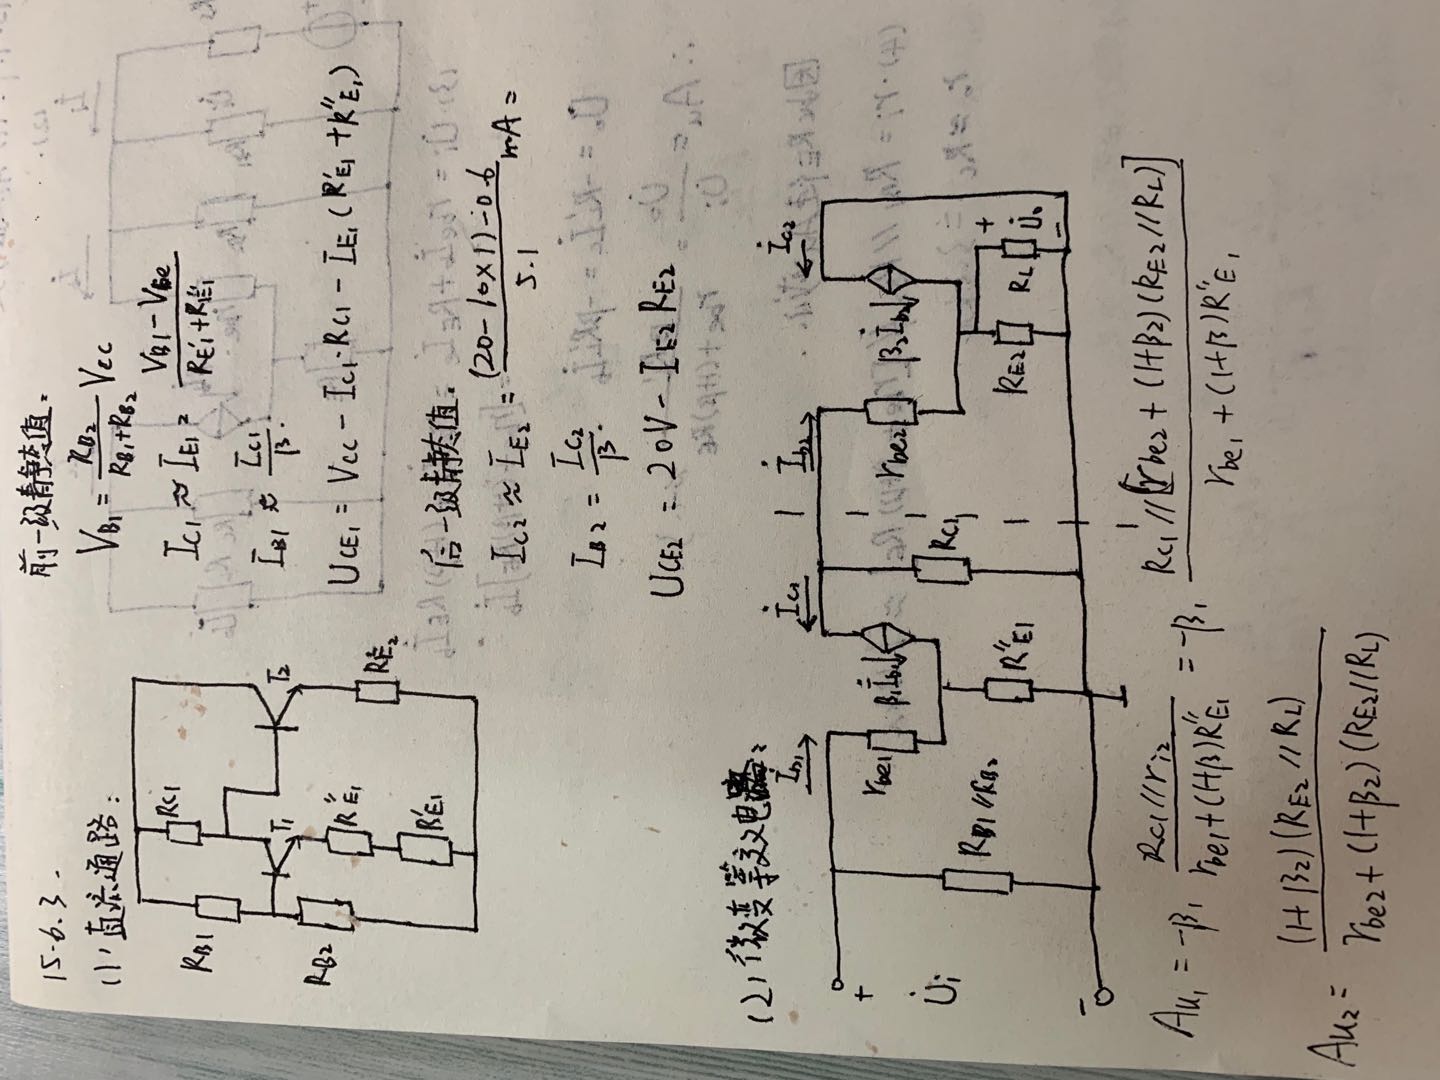 15.6.3.
(1) 直流通路:
RB1
RC1
T1
T2
RB2
R''E1
R'E1
RE2
前一级静态值:
VB1 = RB2/(RB1+RB2) VCC
IC1 ≈ IE1 = (VB1 - VBE)/(RE1'+RE1'')
IB1 ≈ IC1/β.
UCE1 = VCC - IC1·RC1 - IE1(R'E1 + R''E1)
后一级静态值.
IC2 ≈ IE2 = (20-10×1)-0.6/5.1 mA =
IB2 = IC2/β.
UCE2 = 20V - IE2RE2
(2) 微变等效电路
+
U̇i
-
RB1//RB2
İb1
rbe1
β1İb1
İC1
R''E1
RC1
İb2
rbe2
β2İb2
İC2
RE2
RL
+
U̇o
-
Au1 = -β1 RC1//ri2/(rbe1+(1+β)R''E1) = -β1 RC1//[rbe2+(1+β2)(RE2//RL)]/(rbe1+(1+β)R''E1)
Au2 = (1+β2)(RE2//RL)/(rbe2+(1+β2)(RE2//RL))